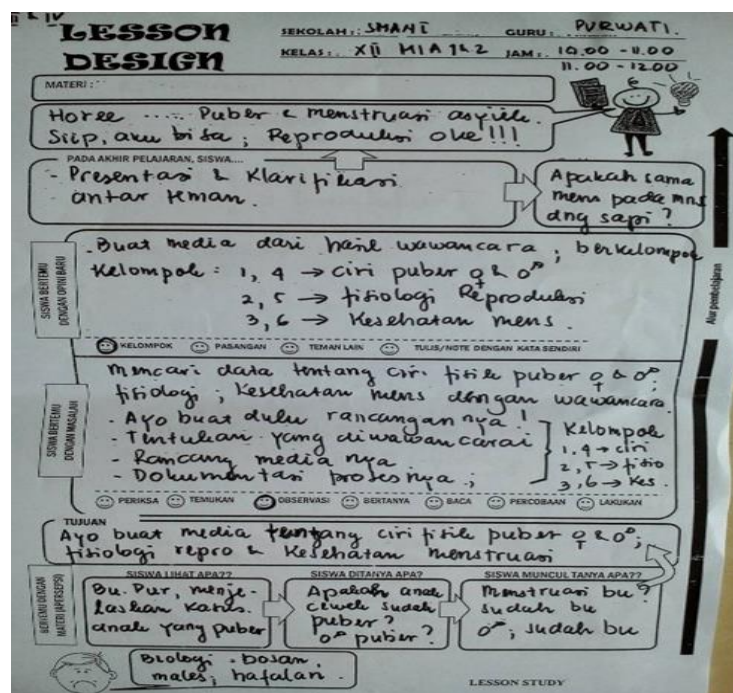 II & IV
LESSON
DESIGN
SEKOLAH: SMAN I GURU: PURWATI.
KELAS: XII MIA 1&2 JAM: 10.00 - 11.00
11.00 - 12.00
MATERI:
Horee ..... Puber & menstruasi asyiik.
Siip, aku bisa; Reproduksi oke!!!
PADA AKHIR PELAJARAN, SISWA....
- Presentasi & Klarifikasi
antar teman.
Apakah sama
mens pada mns
dng sapi?
SISWA BERTEMU
DENGAN OPINI BARU
- Buat media dari hasil wawancara; berkelompok
Kelompok: 1, 4 → ciri puber ♀ & ♂
2, 5 → fisiologi Reproduksi
3, 6 → Kesehatan mens.
KELOMPOK PASANGAN TEMAN LAIN TULIS/NOTE DENGAN KATA SENDIRI
Alur pembelajaran
SISWA BERTEMU
DENGAN MASALAH
Mencari data tentang ciri fisik puber ♀ & ♂;
fisiologi; Kesehatan mens dengan wawancara.
- Ayo buat dulu rancangannya!
- Tentukan yang diwawancarai
- Rancang media nya
- Dokumentasi prosesnya;
Kelompok
1, 4 → ciri
2, 5 → fisio
3, 6 → Kes.
PERIKSA TEMUKAN OBSERVASI BERTANYA BACA PERCOBAAN LAKUKAN
TUJUAN
Ayo buat media tentang ciri fisik puber ♀ & ♂;
fisiologi repro & Kesehatan menstruasi
BERTEMU DENGAN
MATERI (APERSEPSI)
SISWA LIHAT APA??
Bu. Pur, menje-
laskan kasus.
anak yang puber
SISWA DITANYA APA?
Apakah anak
cewek sudah
puber?
♂ puber?
SISWA MUNCUL TANYA APA??
Menstruasi bu?
sudah bu
♂; sudah bu
Biologi . bosan,
males; hafalan.
LESSON STUDY